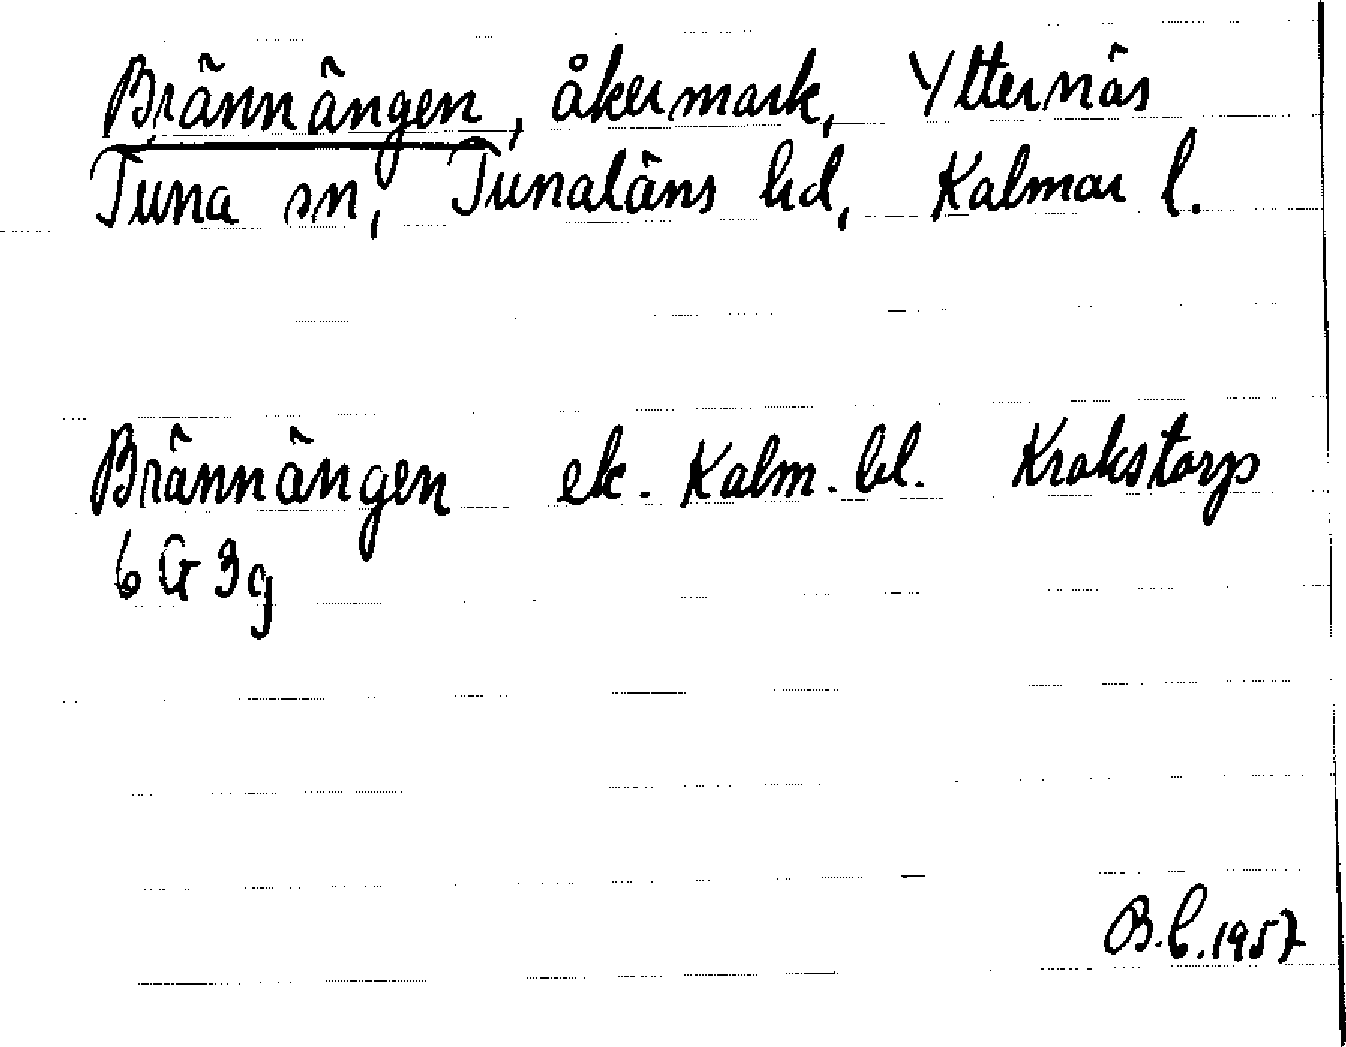 Brännängen, åkermark, Ytternäs
Tuna sn, Tunaläns hd, Kalmar l.
Brännängen ek. Kalm. bl. Krokstorp
6 G 3g
B.L. 1957